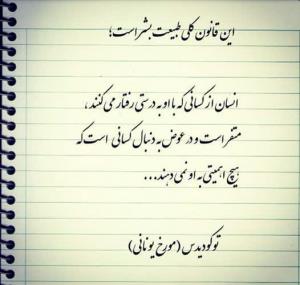 این قانون کلی طبیعت بشر است؛
انسان از کسانی که با او به درستی رفتار می کنند،
متنفر است و در عوض به دنبال کسانی است که
هیچ اهمیتی به او نمی دهند...
توکودیدس (مورخ یونانی)